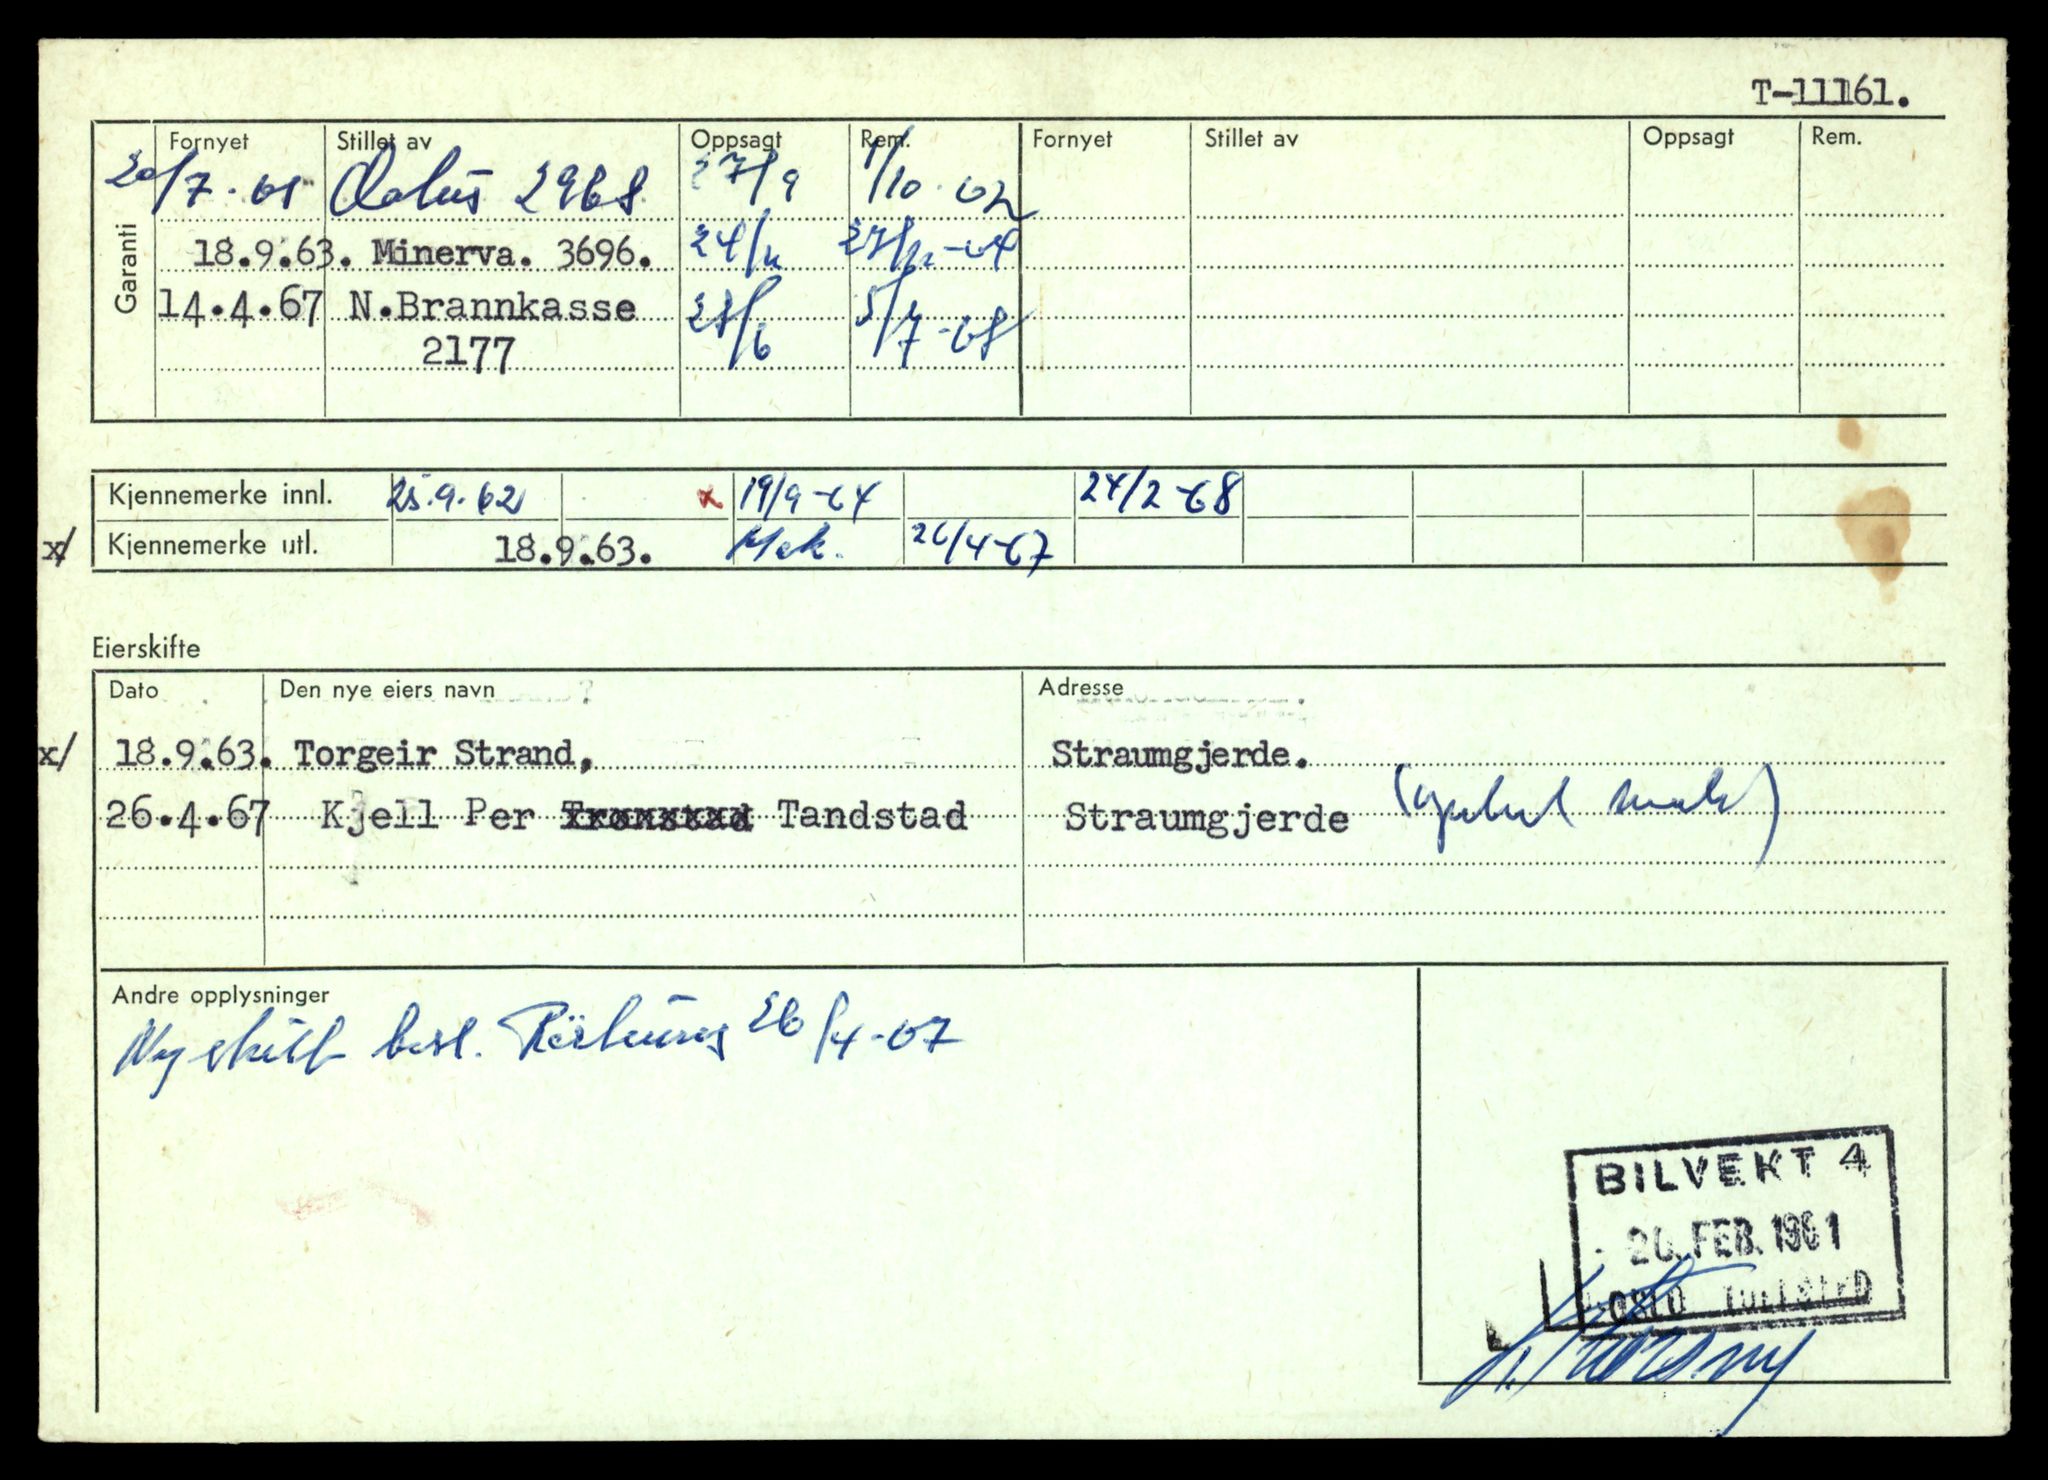 T-11161.
Garanti
Fornyet Stillet av Oppsagt Rem. Fornyet Stillet av Oppsagt Rem.
20/7-61 2968 27/9 1/10-62
18.9.63. Minerva. 3696. 24/11 -64
14.4.67 N.Brannkasse 28/6 5/7-68
2177
Kjennemerke innl. 25.9.62 x 19/9-64 24/2-68
x/ Kjennemerke utl. 18.9.63. 26/4-67
Eierskifte
Dato Den nye eiers navn Adresse
x/ 18.9.63. Torgeir Strand, Straumgjerde.
26.4.67 Kjell Per Tandstad Straumgjerde
Andre opplysninger
Ny skilt best. 26/4-67
BILVEKT 4
FEB. 1961